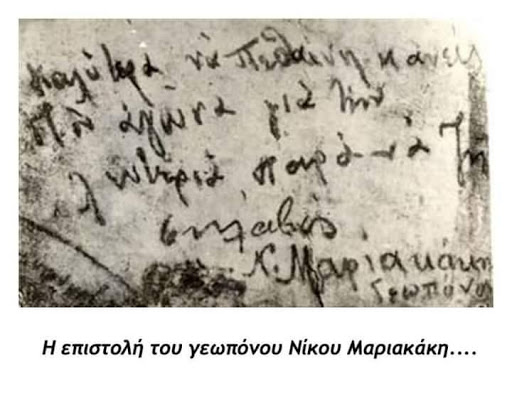 καλύτερα νά πεθαίνη κανείς
στόν άγώνα γιά τήν
λευτεριά παρά νά ζῆ
σκλαβός
Ν. Μαριακάκης
Γεωπόνος
Η επιστολή του γεωπόνου Νίκου Μαριακάκη....